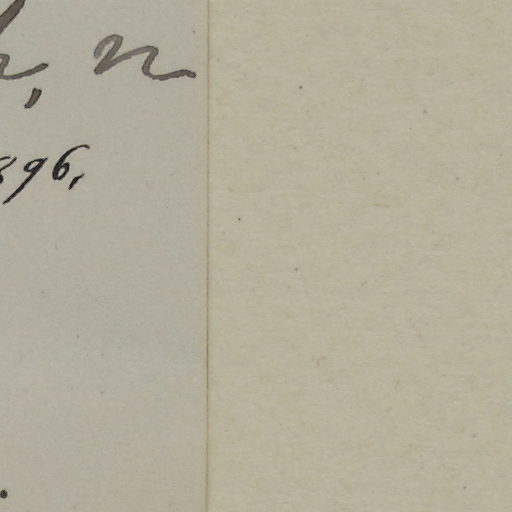 h, n
896.
.